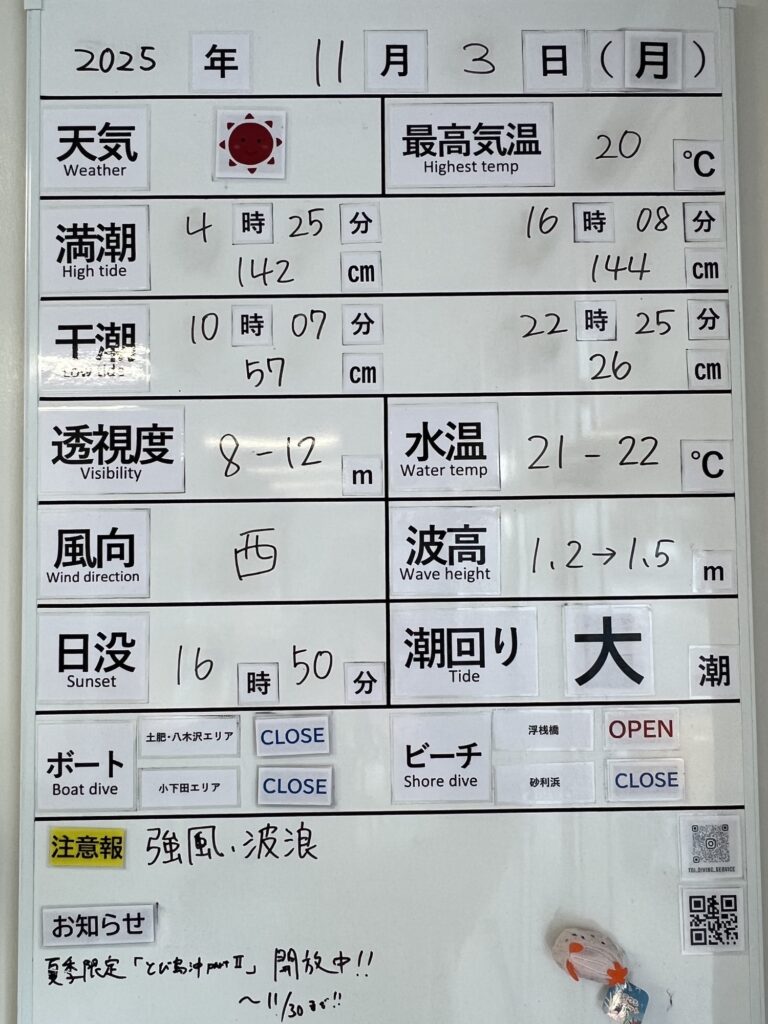 2025 年 11 月 3 日 ( 月 )
天気 Weather
最高気温 Highest temp 20 ℃
満潮 High tide 4 時 25 分 142 cm
16 時 08 分 144 cm
干潮 Low tide 10 時 07 分 57 cm
22 時 25 分 26 cm
透視度 Visibility 8-12 m
水温 Water temp 21-22 ℃
風向 Wind direction 西
波高 Wave height 1.2→1.5 m
日没 Sunset 16 時 50 分
潮回り Tide 大 潮
ボート Boat dive
土肥・八木沢エリア CLOSE
小下田エリア CLOSE
ビーチ Shore dive
浮桟橋 OPEN
砂利浜 CLOSE
注意報 強風、波浪
TOI_DIVING_SERVICE
お知らせ
夏季限定「とび島沖partⅡ」開放中!!
～11/30まで!!